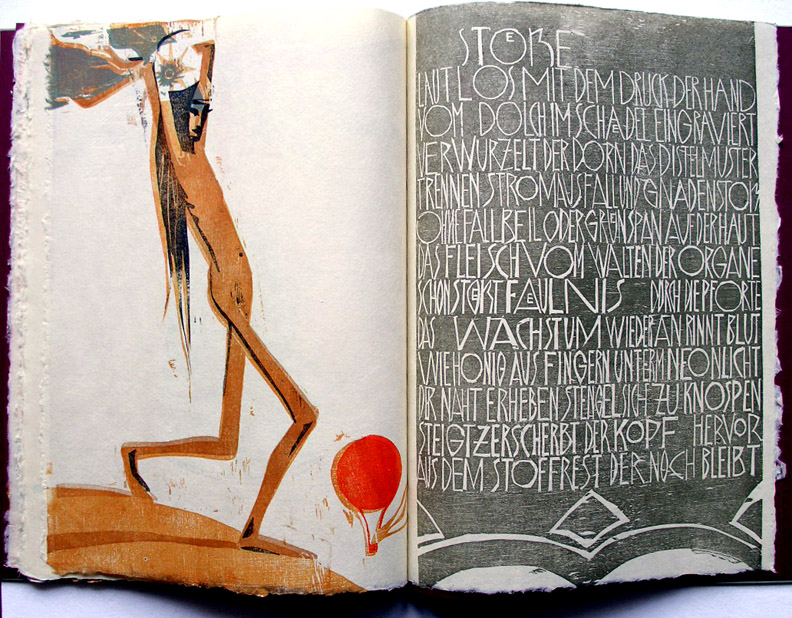 STOEßE
LAUTLOS MIT DEM DRUCK DER HAND
VOM DOLCH IM SCHAEDEL EINGRAVIERT
VERWURZELT DER DORN DAS DISTELMUSTER
TRENNEN STROMAUSFALL UND GNADENSTOß
OHNE FALLBEIL ODER GRUENSPAN AUF DER HAUT
DAS FLEISCH VOM WALTEN DER ORGANE
SCHON STECKT FAEULNIS DURCH DIE PFORTE
DAS WACHSTUM WIEDER AN RINNT BLUT
WIE HONIG AUS FINGERN UNTERM NEONLICHT
DIR NAHT ERHEBEN STENGEL SICH ZU KNOSPEN
STEIGT ZERSCHERBT DER KOPF HERVOR
AUS DEM STOFFREST DER NOCH BLEIBT